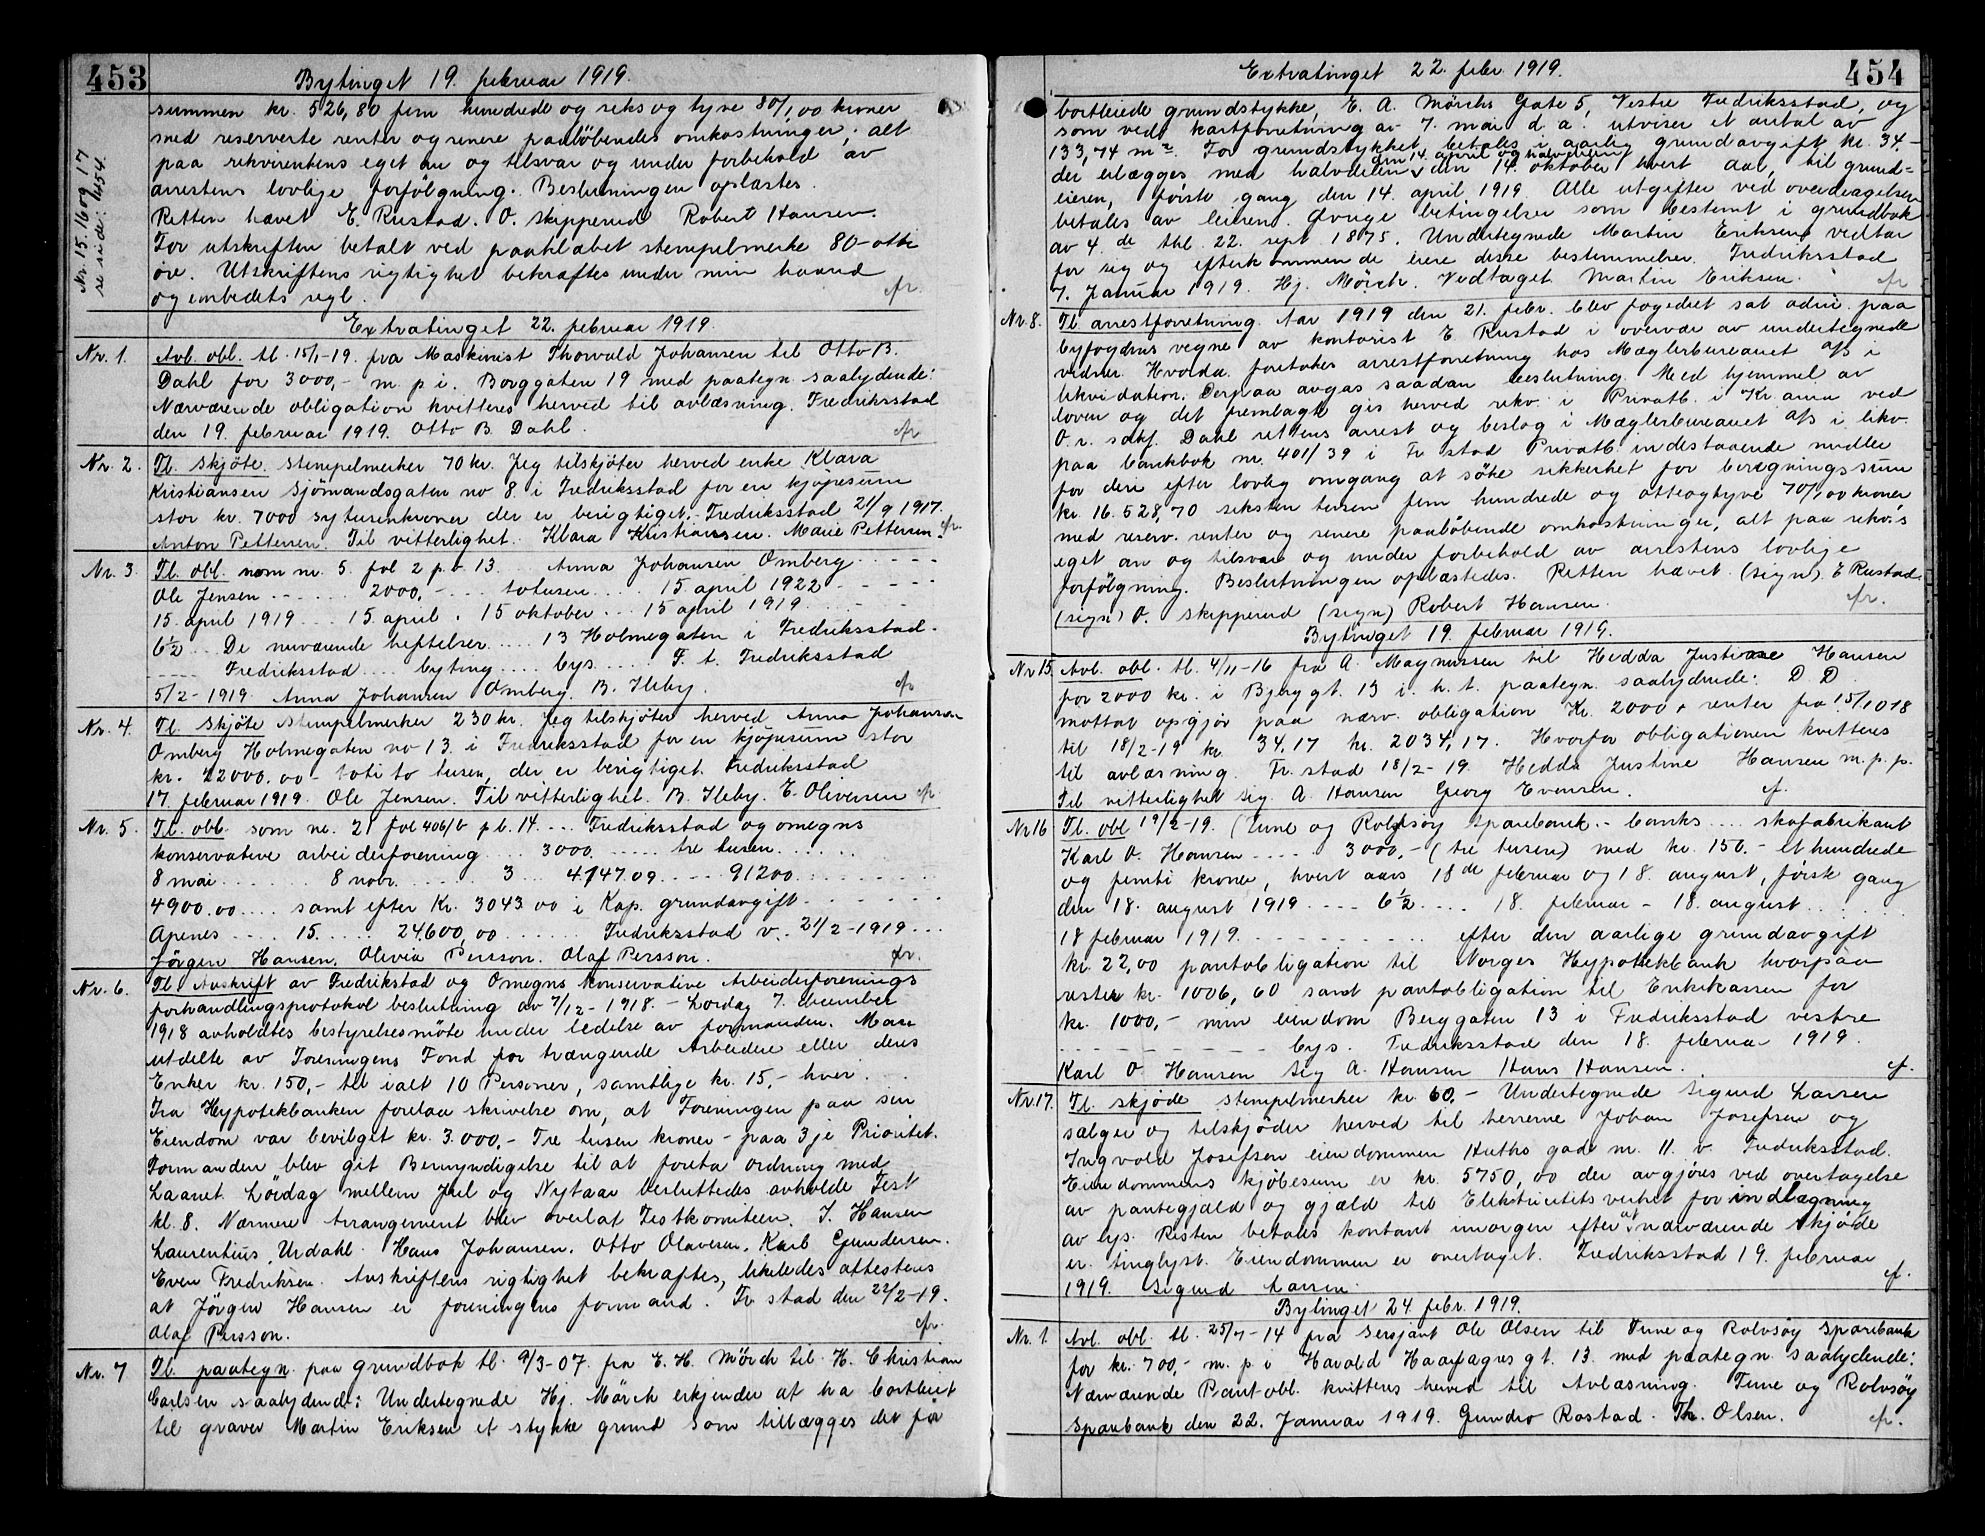 453
Bytinget 19. februar 1919.
Nr. 15. 16 og 17
se side: 454.
summen kr. 526,80 fem hundrede og seks og tyve 80/1,00 kroner
med reserverte renter og senere paaløbendes omkostninger; alt
paa rekvirentens eget an og tilsvar og under forbehold av
arrestens lovlige forfölgning. Beslutningen oplæstes.
Retten hævet E. Rustad. O. Skipperud Robert Hansen.
For utskriften betalt ved paaklæbet stempelmerke 80 - otti
øre. Utskriftens rigtighet bekræftes under min haand
og embedets segl. cfr.
Extratinget 22. februar 1919.
Nr. 1. Avl. obl. tl. 15/1-19. fra Maskinist Thorvald Johansen til Otto B.
Dahl for 3000,- m. p i. Borggaten 19 med paategn. saalydende:
Nærværende obligation kvitteres herved til avlæsning. Fredriksstad
den 19. februar 1919. Otto B. Dahl. cfr
Nr. 2. Tl. Skjöte. Stempelmerker 70 kr. Jeg tilskjöter herved enke Klara
Kristiansen Sjömandsgaten no 8. i Fredriksstad for en kjøpesum
stor kr. 7000 sytusenkroner der er berigtiget. Fredriksstad 21/9 1917.
Anton Pettersen. Til vitterlighet. Klara Kristiansen. Marie Pettersen. cfr.
Nr. 3. Tl. obl. som nr. 5. fol 2 p. b. 13. ... Anna Johansen Omberg .....
Ole Jensen ...... 2000,- .... totusen .... 15 april 1922 .....
15. april 1919 ... 15. april . 15 oktober ... 15 april 1919 .....
6½ ... De nuværende heftelser ..... 13 Holmegaten i Fredriksstad.
..... Fredriksstad .... byting .... bys ..... F. t. Fredriksstad
5/2-1919. Anna Johansen Omberg. B. Ileby. cfr
Nr. 4. Tl. Skjöte Stempelmerker 230 kr. Jeg tilskjöter herved Anna Johansen
Omberg Holmegaten no 13. i Fredriksstad for en kjöpesum stor
kr. 22000.00 - toti to tusen, der er berigtiget. Fredriksstad
17. februar 1919. Ole Jensen. Til vitterlighet. B. Ileby. E. Oliversen cfr.
Nr. 5. Tl. obl. som nr. 21 fol 406/b p b. 14. ... Fredriksstad og omegns
konservative arbeiderforening .... 3000 ..... tre tusen .....
8 mai ....... 8 nobr. ...... 3 ... 4747.09 ..... 91200 .......
4900.00 .... samt efter Kr. 3043 00 i Kap. grundavgift .......
Apenes .... 15 ..... 24600,00 ....... Fredriksstad v. 21/2-1919 ...
Jörgen Hansen. Olivia Persson. Olaf Persson. cfr.
Nr. 6. Tl. Avskrift av Fredrikstad og Omegns konservative Arbeiderforenings
forhandlingsprotokol beslutning av 7/12-1918. - Lördag 7. december
1918 avholdtes bestyrelsesmöte under ledelse av formanden. Man
utdelte av Foreningens Fond for trængende Arbeidere eller deres
Enker kr. 150,- til ialt 10 Personer, samtlige kr. 15,- hver.
Fra Hypotekbanken forelaa skrivelse om, at Foreningen paa sin
Eiendom var bevilget kr. 3.000,- Tre tusen kroner - paa 3je Prioritet.
Formanden blev git Bemyndigelse til at foreta ordning med
Laanet. Lördag mellem Jul og Nytaar besluttedes avholde Fest
kl. 8. Nærmere Arrangement blev overlat Festkomiteen. J. Hansen
Laurentius Urdahl. Hans Johansen. Otto Olavesen. Karl Gundersen.
Even Fredriksen. Avskriftens rigtighet bekræftes, likeledes attestens
at Jörgen Hansen er foreningens formand. Fr stad den 22/2-19.
Olaf Persson. cfr.
Nr. 7 Tl. paategn. paa grundbok tl. 9/3-07. fra E. H. Mörch til H. Christian
Carlsen saalydende: Undertegnede Hj. Mörch erkjender at ha bortleiet
til graver Martin Eriksen et stykke grund som tillægges det før
454
Extratinget 22. febr. 1919.
bortleiede grundstykke, E. A. Mörchs Gate 5, Vestre Fredriksstad, og
som ved kartforretning av 7. mai d. a. utviser et antal av
133,74 m². For grundstykket betales i aarlig grundavgift kr. 34.-
der erlægges med halvdelen den 14. april og halvdelen den 14. oktober hvert aar, til grund=
eieren, förste gang den 14. april 1919. Alle utgifter ved overdragelsen
betales av leieren. Øvrige betingelser som bestemt i grundbok
av 4. de tbl. 22. sept 1875. Undertegnede Martin Eriksen vedtar
for sig og efterkommende eiere disse bestemmelser. Fredriksstad
7. Januar 1919. Hj. Mörch. Vedtaget Martin Eriksen. cfr
Nr. 8. Tl. arrestforretning. Aar 1919 den 21. febr. blev fogedret sat adm. paa
byfogdens vegne av kontorist E Rustad i overvær av undertegnede
vidner. Hvorda. foretokes arrestforretning hos Mæglerbureauet A/S i
likvidation. Derpaa avgas saadan beslutning. Med hjemmel av
loven og det fremlagte gis herved rekv. i Privatb. i Kr ania ved
O. r. sakf. Dahl rettens arrest og beslag i Mæglerbureauet A/S i likv.
paa bankbok nr. 401/39 i Fr stad Privatb. indestaaende midler
for deri efter lovlig omgang at söke sikkerhet for beregningssum
kr. 16.528,70 seksten tusen fem hundrede og otteogtyve 70/1,00 kroner
med reserv. renter og senere paalöbende omkostninger, alt paa rekv.s
eget an og tilsvar og under forbehold av arrestens lovlige
forfölgning. Beslutningen oplæstedes. Retten hævet (sign) E Rustad.
(sign) O. Skipperud (sign) Robert Hansen. cfr.
Bytinget 19. februar 1919.
Nr 15. Avl. obl. tl. 4/11-16 fra A. Magnussen til Hedda Justine Hansen
for 2000 kr. i Bjerggt. 13 i. h. t. paategn. saalydende: D. D
mottat opgjør paa nærv. obligation Kr. 2000 + renter fra 15/10 18
til 18/2-19 kr. 34,17 kr. 2034,17. Hvorfor obligationen kvitteres
til avlæsning. Fr. stad 18/2-19. Hedda Justine Hansen m. p. p.
Til vitterlighet Sig. A. Hansen Georg Evensen. cf.
Nr 16 Tl. obl 19/2-19. (Tune og Rolvsöy Sparebank.- banks .... skofabrikant
Karl O. Hansen ..... 3000,- (tre tusen) med kr. 150.- et hundrede
og femti kroner, hvert aars 18de februar og 18. august, förste gang
den 18. august 1919 .... 6½ .... 18. februar - 18. august ......
18 februar 1919. ........... efter den aarlige grundavgift
kr. 22,00 pantobligation til Norges Hypotekbank hvorpaa
rester kr. 1006,60 samt pantobligation til Enkekassen for
kr. 1000,- min eiendom Berggaten 13 i Fredriksstad vestre
............ bys. Fredriksstad den 18. februar 1919.
Karl O. Hansen Sig A. Hansen Hans Hansen. cf.
Nr. 17. Tl. skjøde stempelmerker kr 60,- Undertegnede Sigurd Larsen
sælger og tilskjøder herved til herrerne Johan Josefsen og
Ingvald Josefsen eiendommen Huths gade nr. 11. v. Fredriksstad.
Eiendommens kjöbesum er kr. 5750,00 der avgjöres ved overtagelse
av pantegjæld og gjæld til Elektricitetsverket for indlægning
av lys. Resten betales kontant imorgen efter at nærværende skjøde
er tinglyst. Eiendommen er overtaget. Fredriksstad 19. februar
1919. Sigurd Larsen. cf.
Bytinget 24. febr. 1919.
Nr. 1. Avl. obl. tl. 25/7-14 fra Sersjant Ole Olsen til Tune og Rolvsöy Sparebank
for kr. 700,- m. p i Harald Haarfagres gt. 13. med paategn. saalydende:
Nærværende Pantobl. kvitteres herved til Avlæsning. Tune og Rolvsöy
Sparebank den 22. Januar 1919. Gundro Rostad. Th. Olsen. cfr.